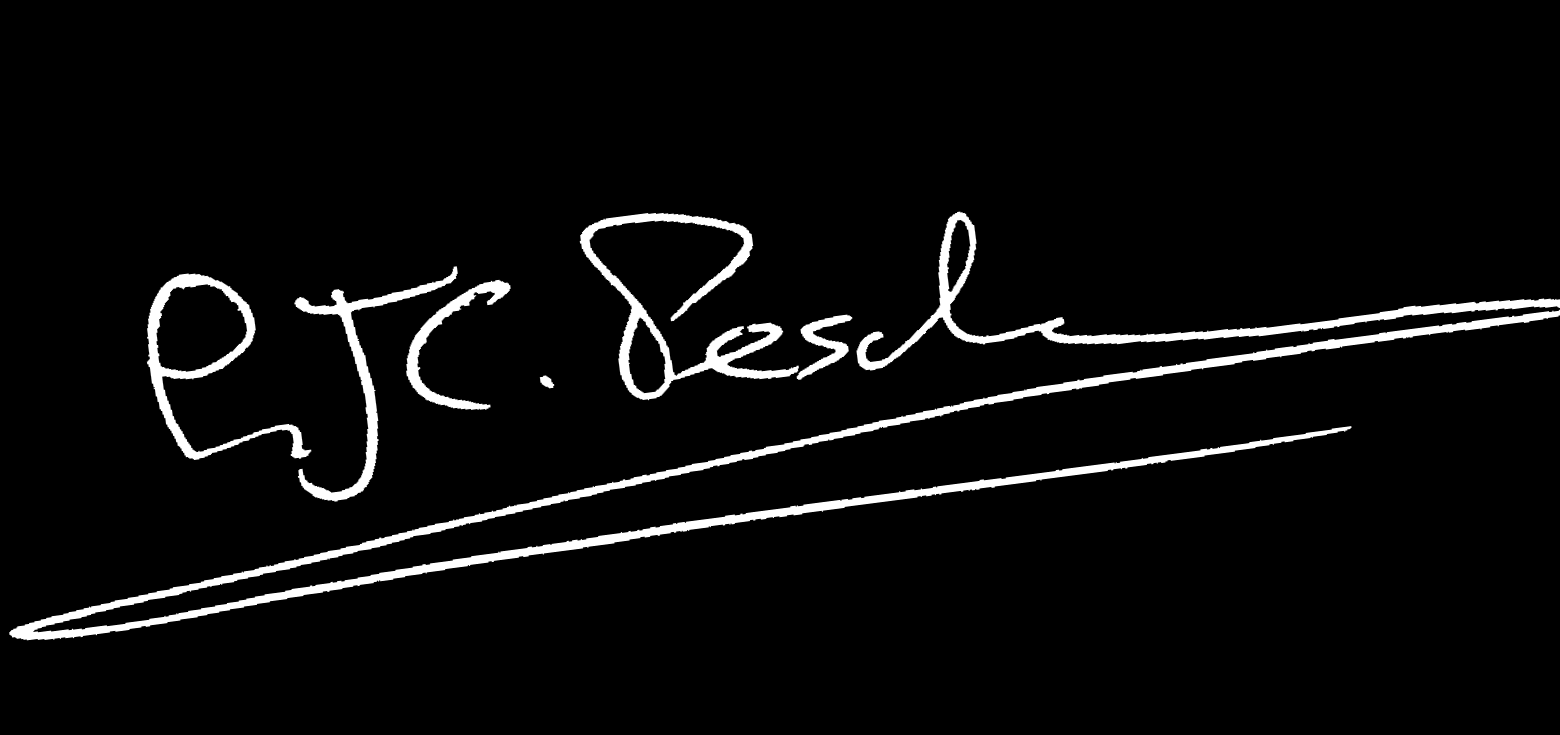 PJC. Pesch